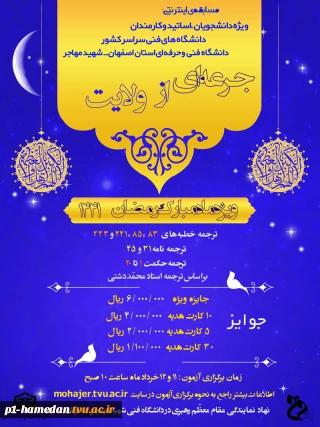 مسابقه‌ی اینترنتی:
ویژه دانشجویان، اساتید و کارمندان
دانشگاه‌های فنی سراسر کشور
دانشگاه فنی وحرفه‌ای استان اصفهان_شهید مهاجر
جرعه‌ای از ولایت
ویژه ماه مبارک رمضان ۱۴۴۱
ترجمه خطبه‌های ۸۳، ۸۵، ۲۲۱ و ۲۲۳
ترجمه نامه ۳۱ و ۴۵
ترجمه حکمت ۱ تا ۲۰
براساس ترجمه استاد محمد دشتی
جوایز
جایزه ویژه ۶/۰۰۰/۰۰۰ ریال
۱۰ کارت هدیه ۴/۰۰۰/۰۰۰ ریال
۵ کارت هدیه ۲/۰۰۰/۰۰۰ ریال
۳۰ کارت هدیه ۱/۱۰۰/۰۰۰ ریال
زمان برگزاری آزمون: ۱۱ و ۱۲ خرداد ماه ساعت ۱۰ صبح
اطلاعات بیشتر راجع به نحوه برگزاری آزمون در سایت mohajer.tvu.ac.ir
نهاد نمایندگی مقام معظم رهبری در دانشگاه فنی
p1-hamedan.tvu.ac.ir